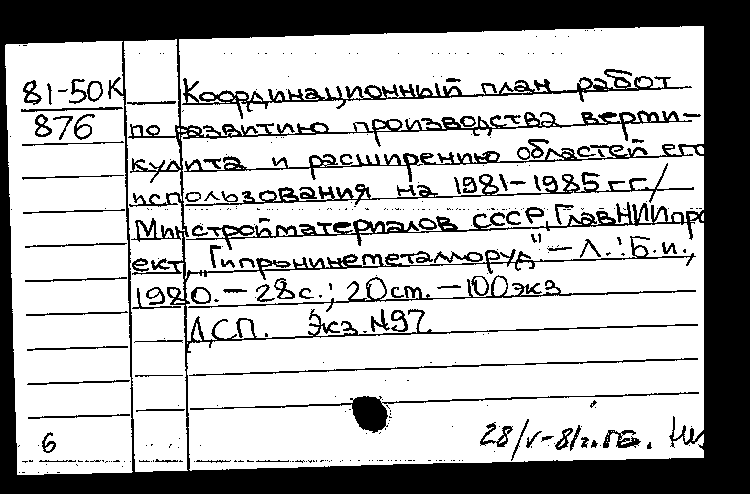 81-50К Координационный план работ
876 по развитию производства верми-
кулита и расширению областей его
использования на 1981-1985 гг./
Минстройматериалов СССР, ГлавНИИпро
ект, "Гипронинеметаллоруд" - Л.: Б.и.,
1980. - 28с.; 20ст. - 100экз
ДСП. Экз. №97.
6
28/V-81г.